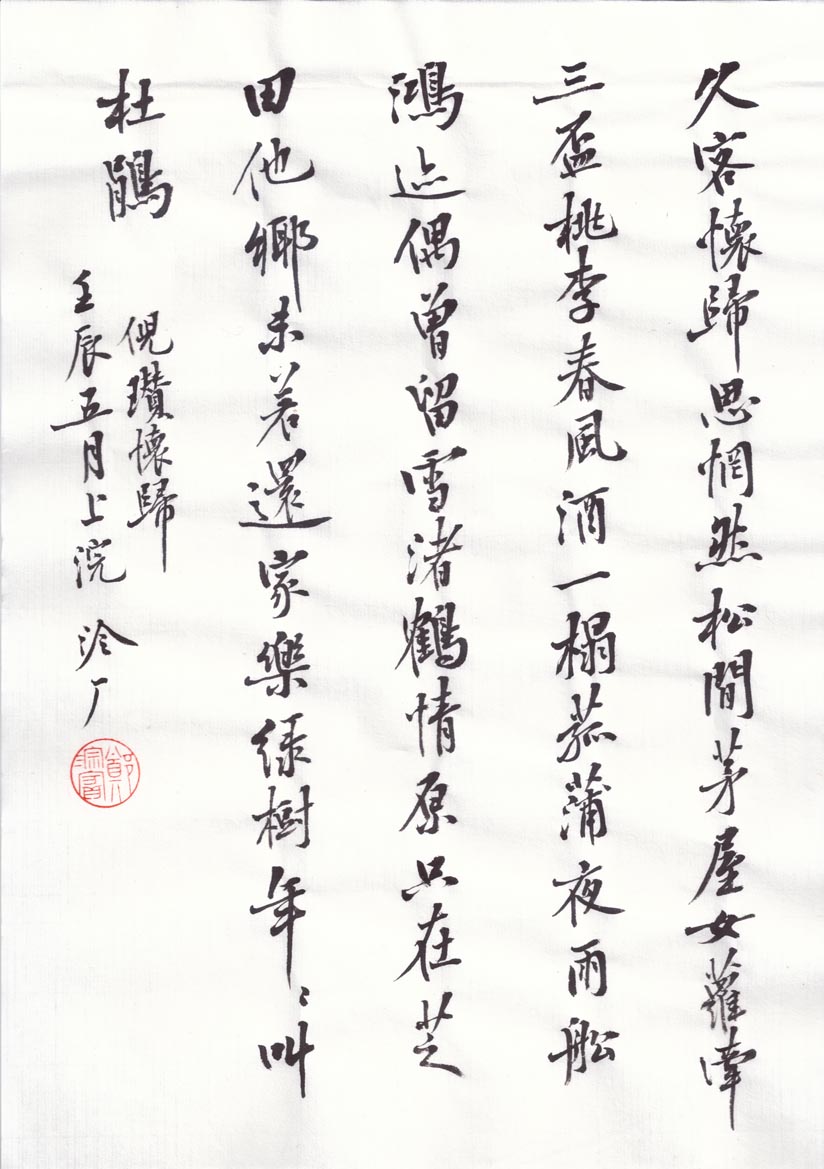 久客懷歸思惘然松間茅屋女蘿牽
三盃桃李春風酒一榻菰蒲夜雨舩
鴻迹偶曾留雪渚鶴情原只在芝
田他鄉未若還家樂綠樹年〻叫
杜鵑
倪瓚懷歸
壬辰五月上浣 泠厂